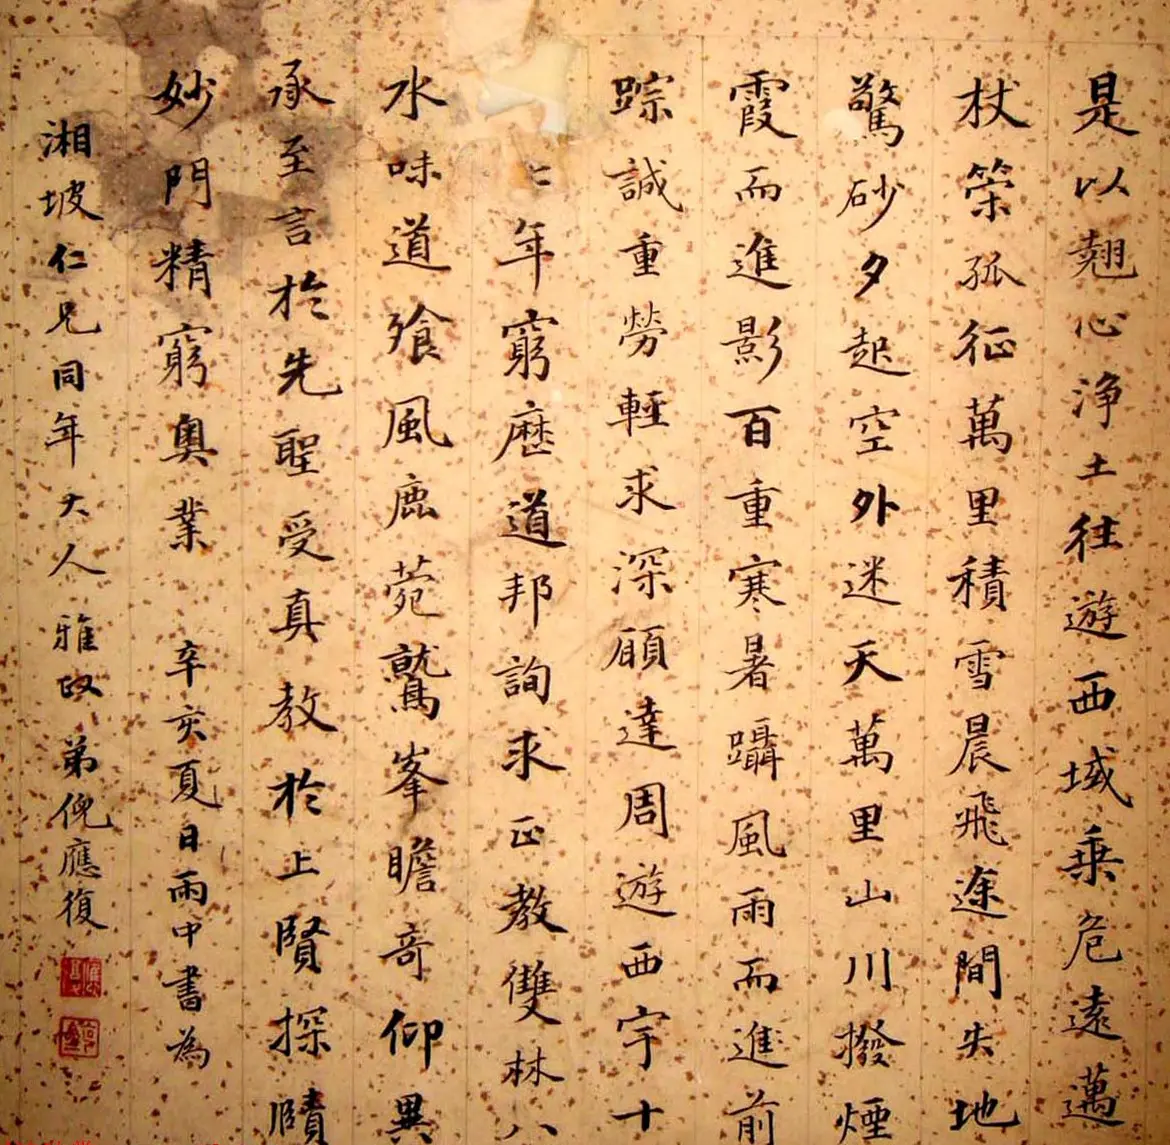 是以翹心浄土往遊西域乘危遠邁
杖策孤征萬里積雪晨飛途間失地
驚砂夕起空外迷天萬里山川撥煙
霞而進影百重寒暑躡風雨而進前
踪誠重勞輕求深願達周遊西宇十
七年窮歷道邦詢求正教雙林八
水味道飱風鹿菀鷲峯瞻奇仰異
承至言於先聖受真教於上賢探賾
妙門精窮奧業 辛亥夏日雨中書為
湘坡仁兄同年大人雅政弟倪應復